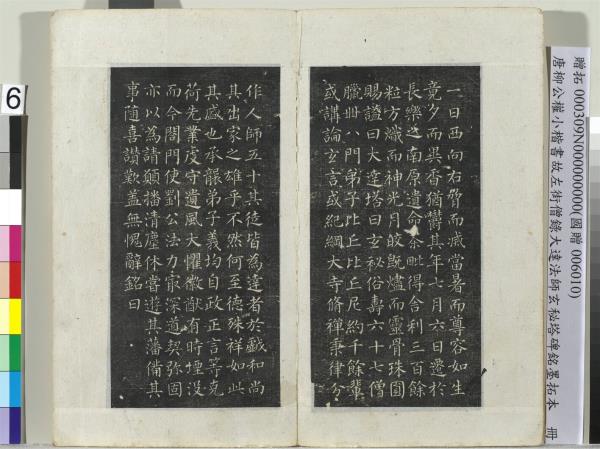 一日西向右脅而滅當暑而尊容如生
竟夕而異香猶鬱其年七月六日遷於
長樂之南原遺命荼毗得舍利三百餘
粒方熾而神光月皎既燼而靈骨珠圓
賜謚曰大達塔曰玄秘俗壽六十七僧
臘卌八門弟子比丘比丘尼約千餘輩
或講論玄言或紀綱大寺脩禪秉律分
作人師五十其徒皆為達者於戲和尚
其出家之雄乎不然何至德殊祥如此
其盛也承襲弟子義均自政正言等克
荷先業虔守遺風大懼徽猷有時堙沒
而今閤門使劉公法力最深道契弥固
亦以為請願播清塵休嘗遊其藩備其
事随喜讃歎盖無愧辭銘曰
贈拓 000309N000000000(國贈 006010)
唐柳公權小楷書故左街僧錄大達法師玄秘塔碑銘墨拓本 冊
6